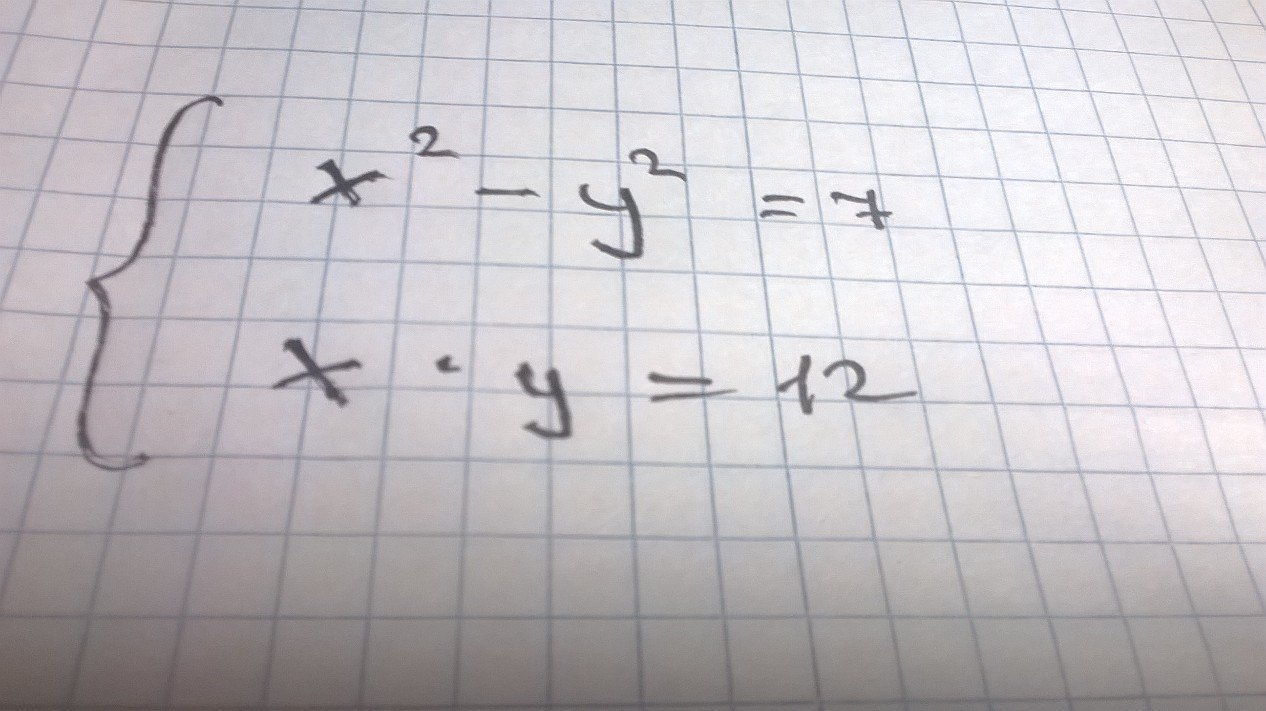 x² - y² = 7
x · y = 12